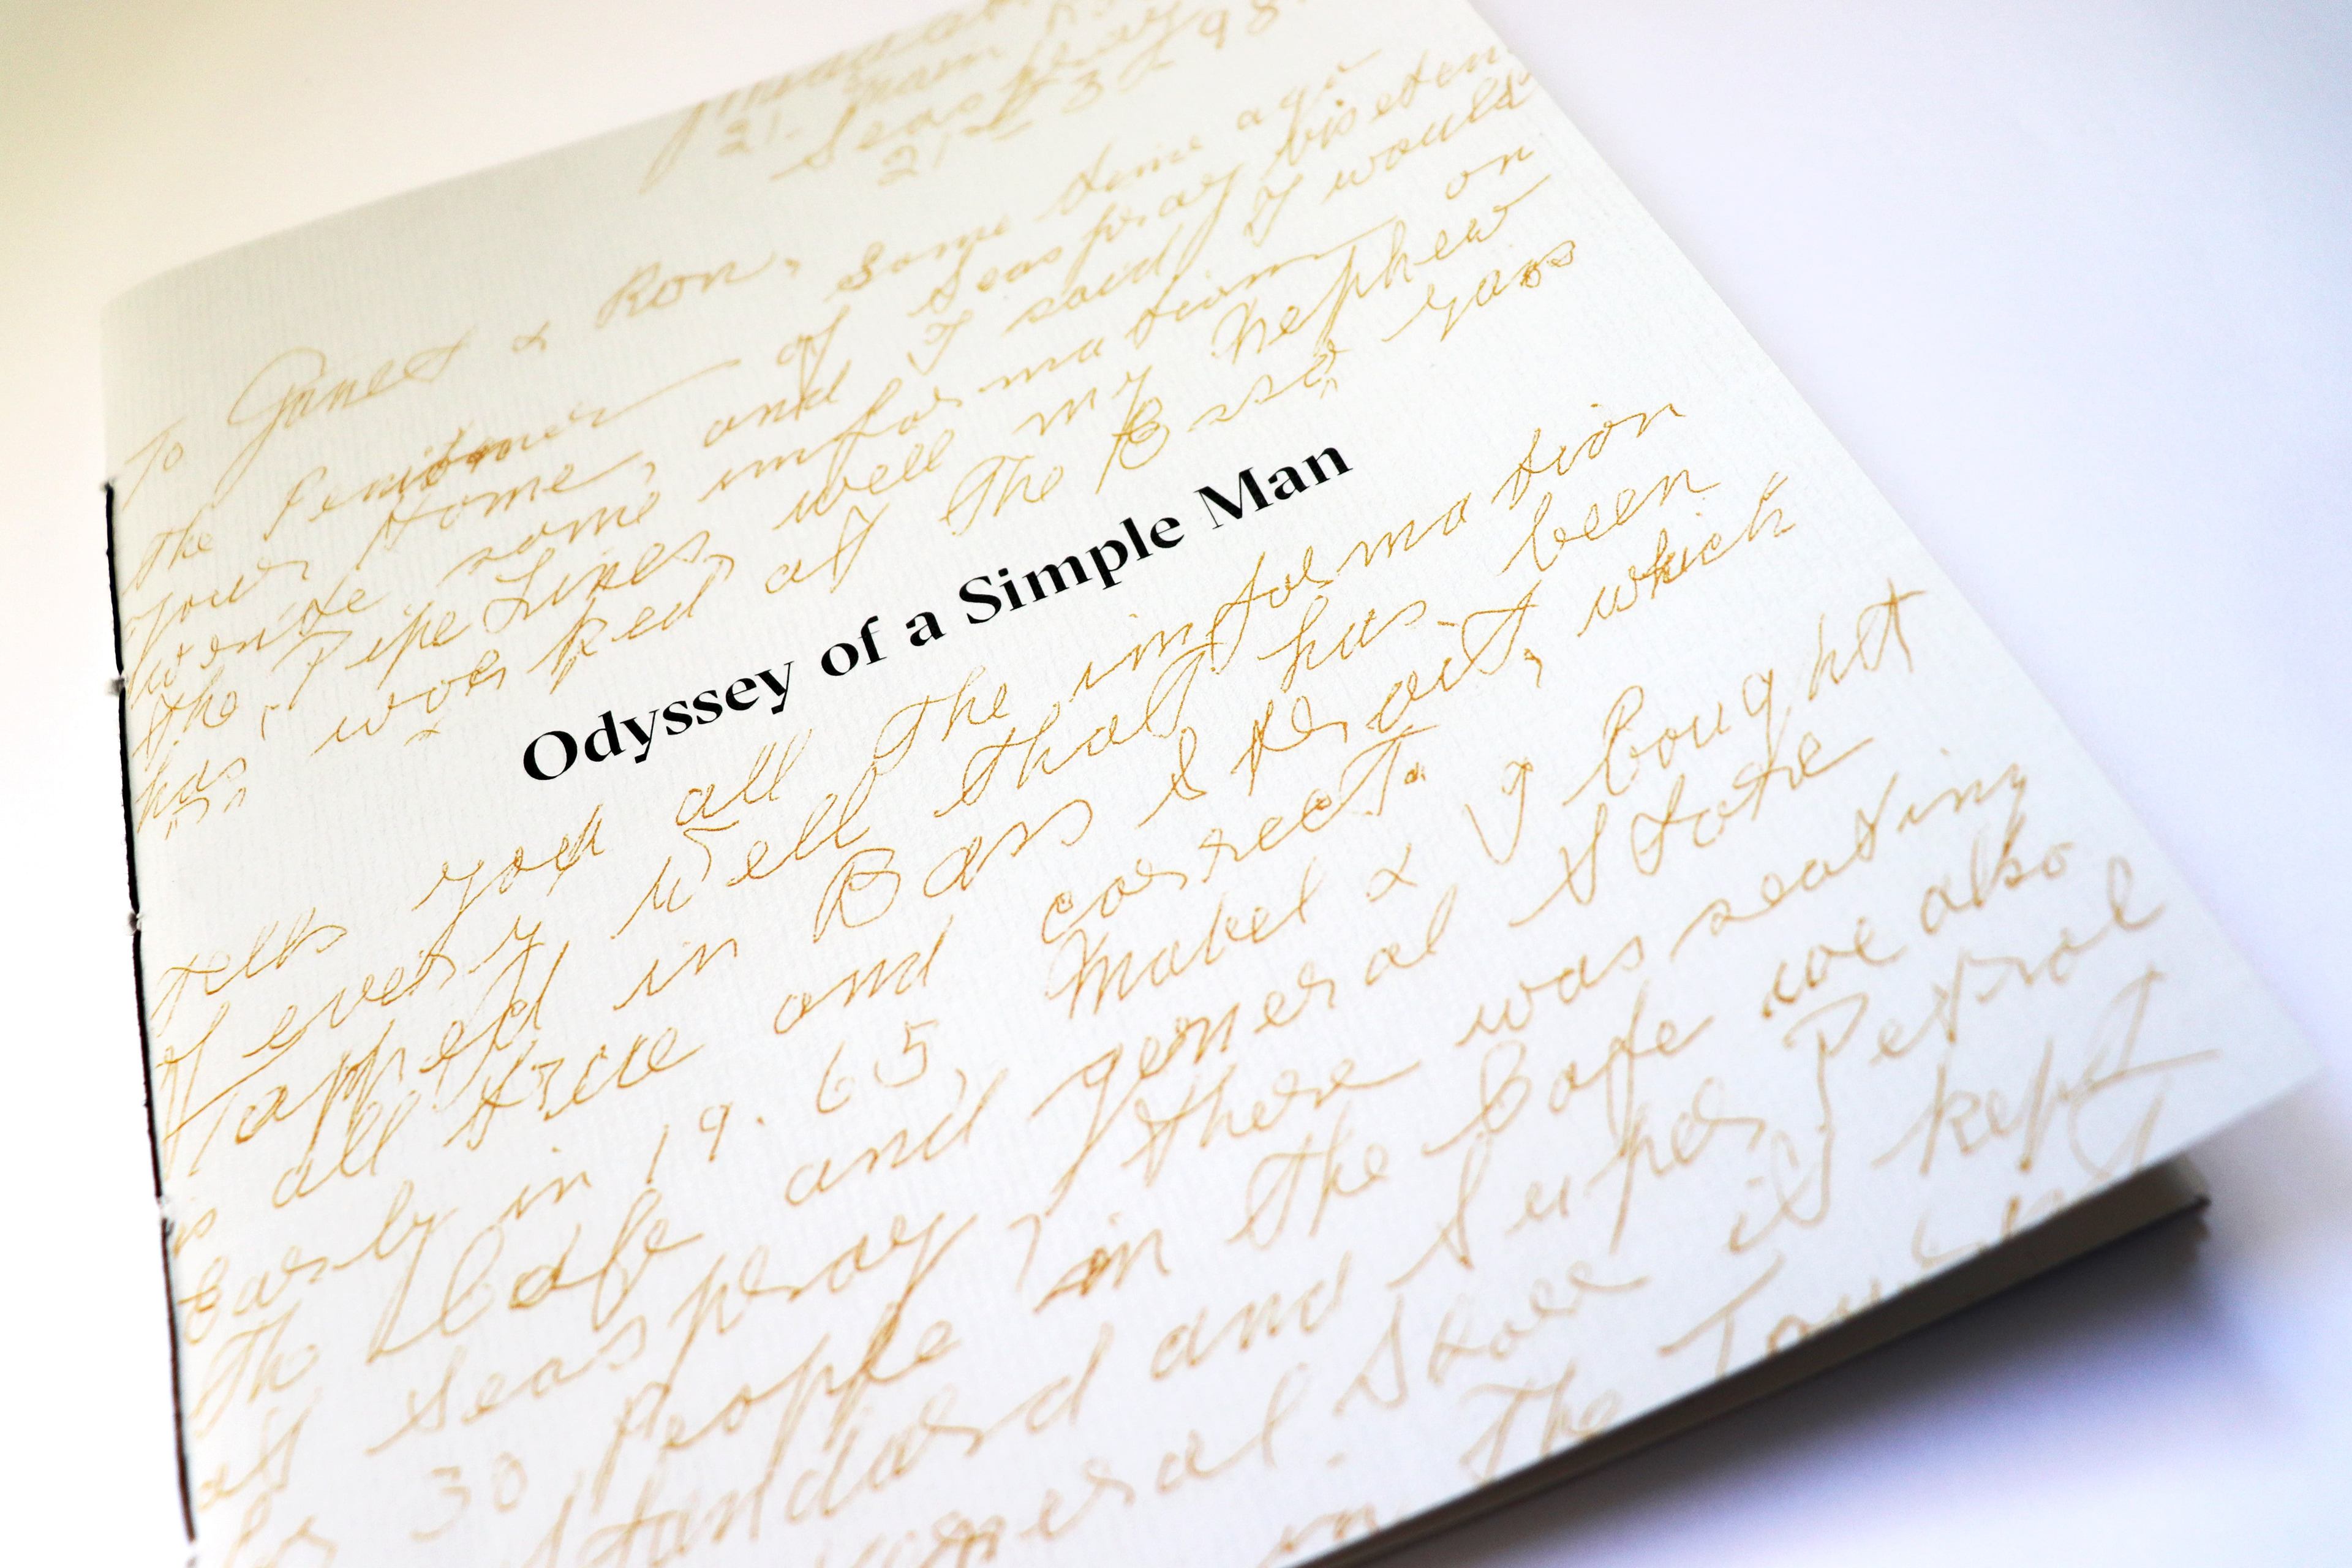 21-
Seaspray
21-3-98.
To Janet & Ron, some time ago
the Penitioner of Seaspray biseten
your Home, and I said I would
write some information on
the Pipe Lines, well my Nephew
has worked at the Esso gas
Odyssey of a Simple Man
tells you all the information
of every well that has been
Tapped in Bass Strait, which
is all true and correct.
Early in 19.65 Mabel & I bought
the Cafe and general Store
at Seaspray, there was seating
for 30 people in the Cafe we also
Standard and Super Petrol
general Store it kept
in The